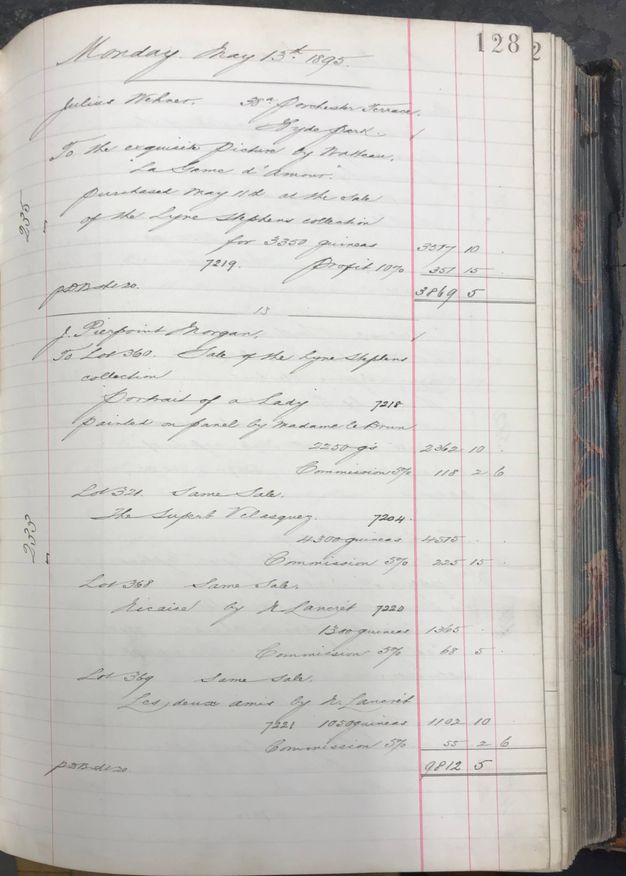 128
Monday May 13th 1895.
Julius Wehner. 38a Porchester Terrace,
Hyde Park.
To the exquisite Picture by Watteau,
"La Game d'Amour"
purchased May 11th at the Sale
of the Lyne Stephens collection
for 3350 guineas 3517 10
7219. Profit 10% 351 15
3869 5
13
J. Pierpoint Morgan.
To Lot 360. Sale of the Lyne Stephens
collection
Portrait of a Lady 7218
painted on panel by Madame le Brun
2250 gs 2362 10
Commission 5% 118 2 6
Lot 321. Same Sale.
The Superb Velasquez. 7204
4300 guineas 4515
Commission 5% 225 15
Lot 368 Same Sale.
Nicaise by N. Lancret 7220
1300 guineas 1365
Commission 5% 68 5
Lot 369 Same Sale.
Les deux amis by N. Lancret
7221 1050 guineas 1102 10
Commission 5% 55 2 6
9812 5